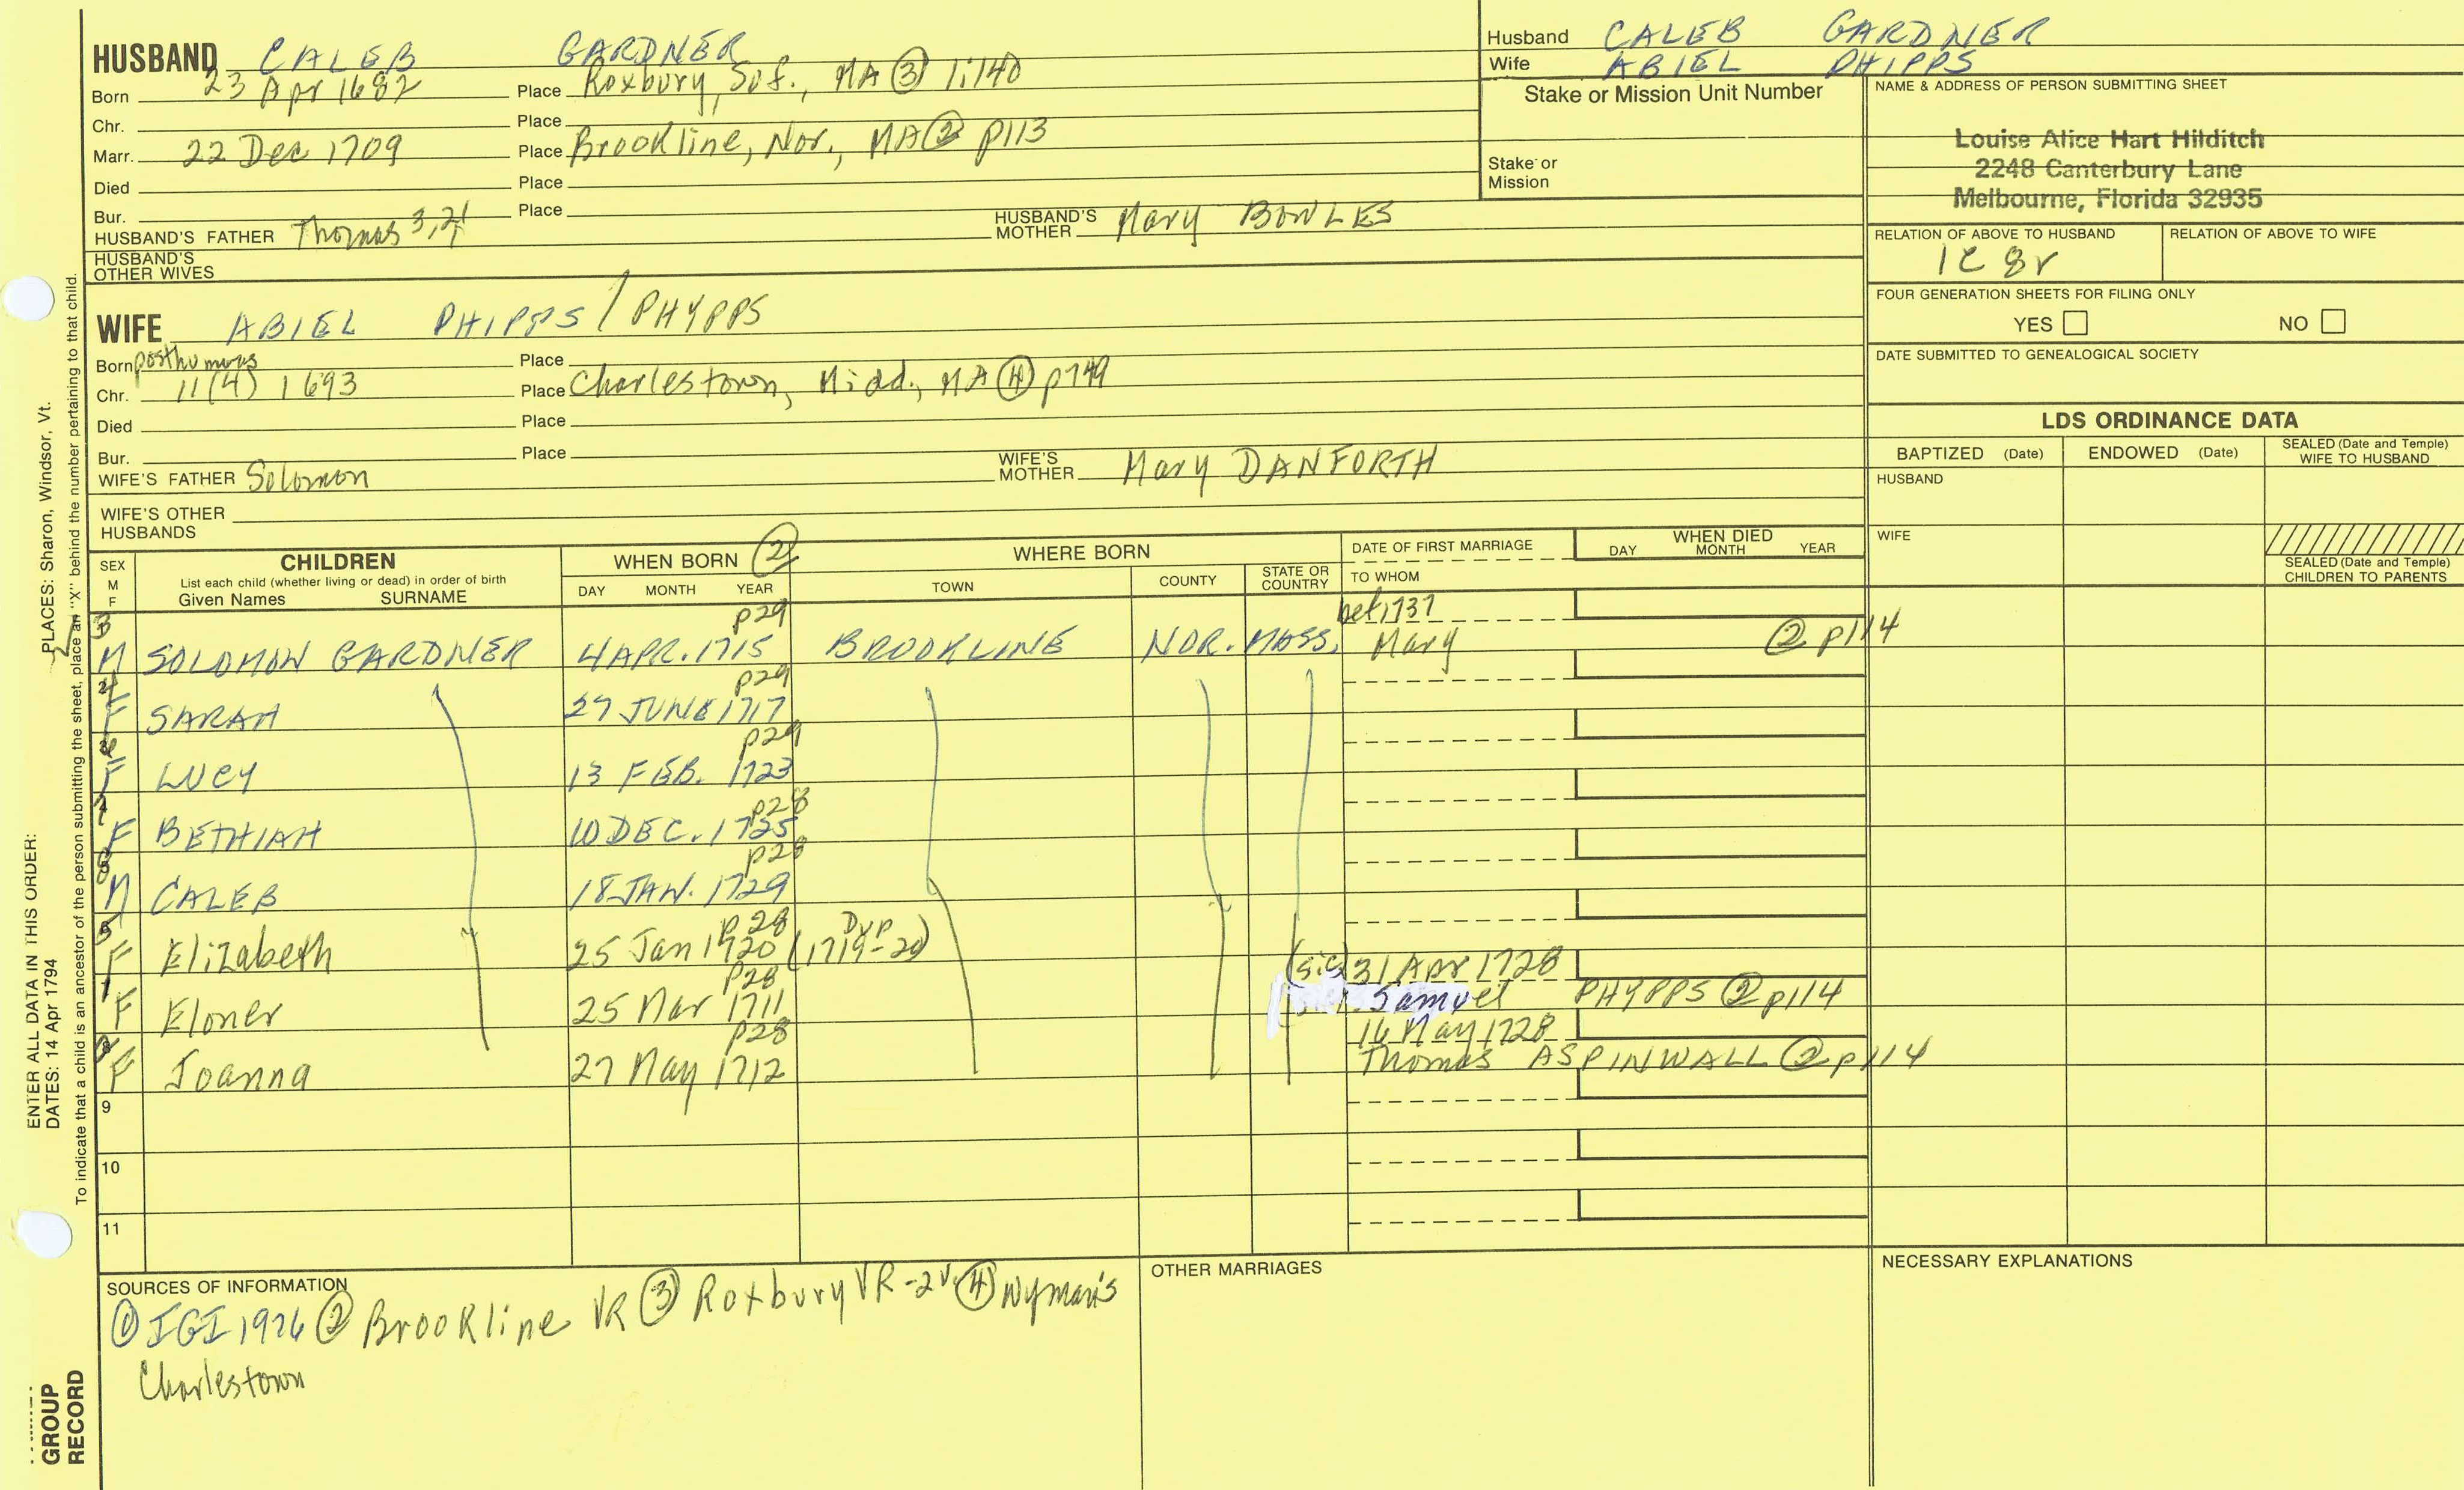 HUSBAND CALEB GARDNER
Born 23 Apr 1682 Place Roxbury, Suf., MA ③ 1:140
Chr. Place
Marr. 22 Dec 1709 Place Brookline, Nor., MA ② p113
Died Place
Bur. Place
HUSBAND'S FATHER Thomas 3,2,1 HUSBAND'S MOTHER Mary BOWLES
HUSBAND'S OTHER WIVES
WIFE ABIEL PHIPPS / PHYPPS
Born posthumous Place
Chr. 11(4) 1693 Place Charlestown, Midd, MA ④ p749
Died Place
Bur. Place
WIFE'S FATHER Solomon WIFE'S MOTHER Mary DANFORTH
WIFE'S OTHER HUSBANDS
Husband CALEB GARDNER
Wife ABIEL PHIPPS
Stake or Mission Unit Number
Stake or Mission
NAME & ADDRESS OF PERSON SUBMITTING SHEET
Louise Alice Hart Hilditch
2248 Canterbury Lane
Melbourne, Florida 32935
RELATION OF ABOVE TO HUSBAND RELATION OF ABOVE TO WIFE
1C 8r
FOUR GENERATION SHEETS FOR FILING ONLY
YES NO
DATE SUBMITTED TO GENEALOGICAL SOCIETY
LDS ORDINANCE DATA
BAPTIZED (Date) ENDOWED (Date) SEALED (Date and Temple) WIFE TO HUSBAND
HUSBAND
WIFE
SEALED (Date and Temple) CHILDREN TO PARENTS
SEX M F CHILDREN WHEN BORN ② WHERE BORN DATE OF FIRST MARRIAGE WHEN DIED
List each child (whether living or dead) in order of birth
Given Names SURNAME DAY MONTH YEAR TOWN COUNTY STATE OR COUNTRY TO WHOM DAY MONTH YEAR
3 p29 bef 1737
M SOLOMON GARDNER 4 APR. 1715 BROOKLINE NOR. MASS. Mary ② p114
4 p29
F SARAH 27 JUNE 1717
6 p29
F LUCY 13 FEB. 1723
7 p28
F BETHIAH 10 DEC. 1725
8 p28
M CALEB 18 JAN. 1729
5 p28 DYP
F Elizabeth 25 Jan 1720 (1719-20)
1 p28 (sic) 31 Apr 1728
F Eloner 25 Mar 1711 Samuel PHYPPS ② p114
p28 16 May 1728
F Joanna 27 May 1712 Thomas ASPINWALL ② p114
9
10
11
SOURCES OF INFORMATION
① IGI 1976 ② Brookline VR ③ Roxbury VR-2v. ④ Wyman's
Charlestown
OTHER MARRIAGES
NECESSARY EXPLANATIONS
ENTER ALL DATA IN THIS ORDER:
DATES: 14 Apr 1794 PLACES: Sharon, Windsor, Vt.
To indicate that a child is an ancestor of the person submitting the sheet, place an "X" behind the number pertaining to that child.
GROUP
RECORD